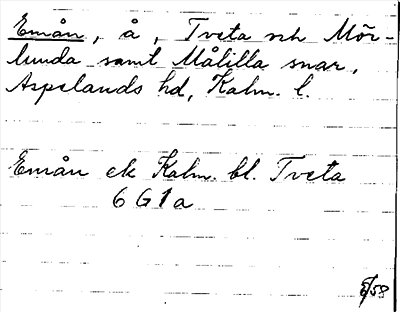 Emån, å, Tveta och Mör-
lunda samt Målilla snar,
Aspelands hd, Kalm. l.
Emån ek Kalm. bl. Tveta
6 G 1 a
/58